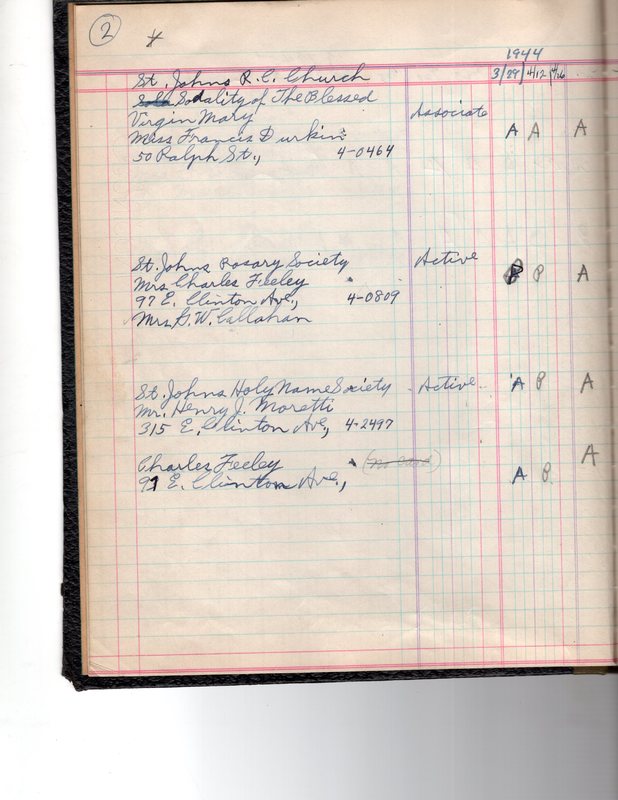 2
1944
3/29 4/12 4/26
St. Johns R.C. Church
Sodality of The Blessed
Virgin Mary Associate
Miss Francis Durkin A A A
50 Ralph St., 4-0464
St. Johns Rosary Society Active
Mrs. Charles Feeley P P A
97 E. Clinton Ave., 4-0809
Mrs. G.W. Callahan
St. Johns Holy Name Society Active A P A
Mr. Henry J. Moretti
315 E. Clinton Ave., 4-2497
Charles Feeley (No Card) A
97 E. Clinton Ave., A P